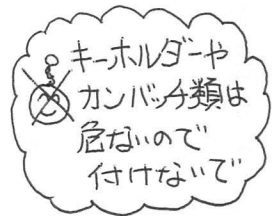 キーホルダーや
カンバッチ類は
危ないので
付けないで